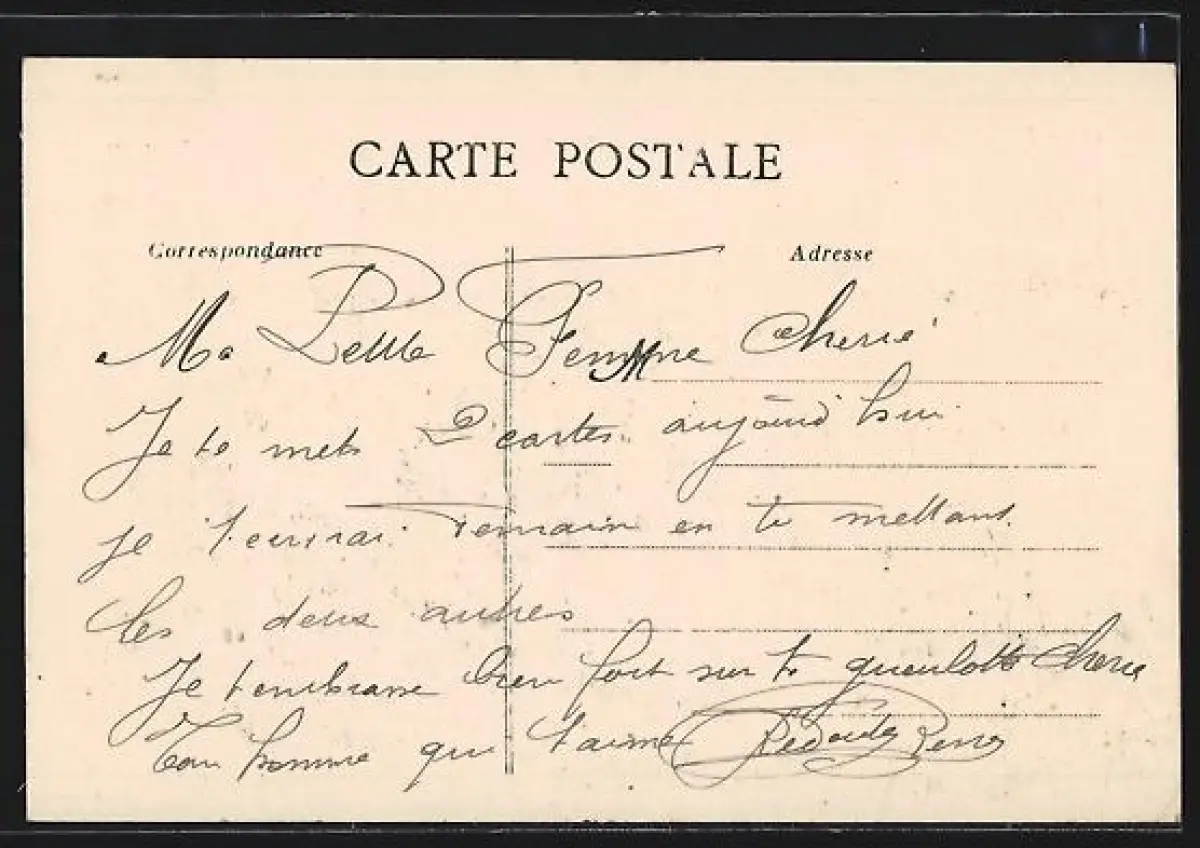 CARTE POSTALE
Correspondance
Adresse
Ma Petite Femme Cherie
Je te mets 2 cartes aujourd'hui
je t'ecrirai demain en te mettant
les deux autres
Je t'embrasse bien fort sur ta gueulotte Cherie
Ton homme qui t'aime